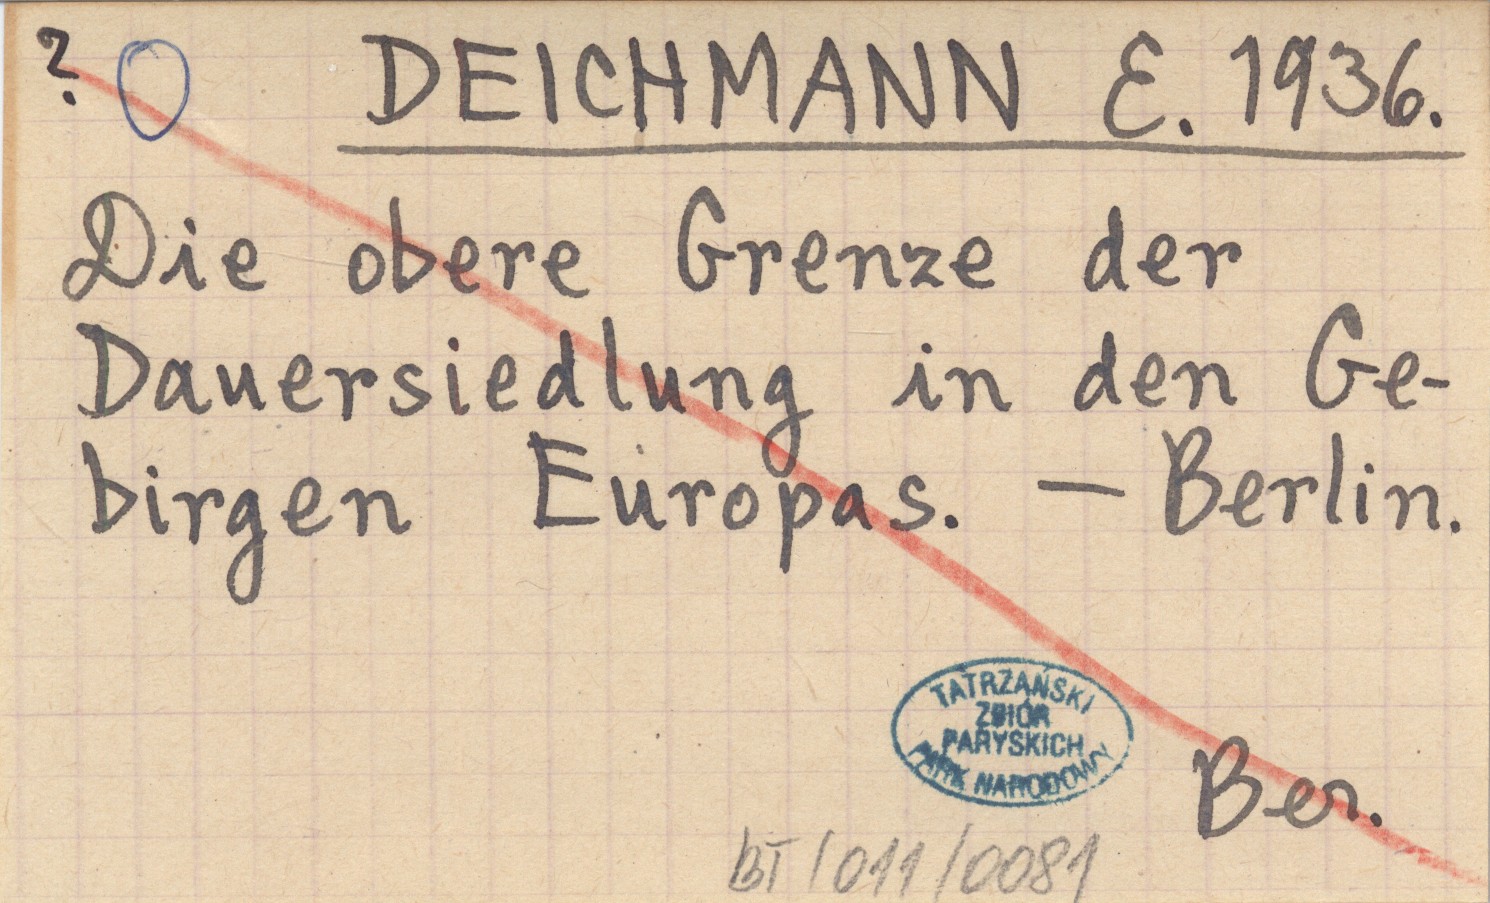 ? DEICHMANN E. 1936.
Die obere Grenze der
Dauersiedlung in den Ge-
birgen Europas. — Berlin.
TATRZAŃSKI
ZBIÓR
PARYSKICH
PARK NARODOWY
Ber.
BT/011/0081